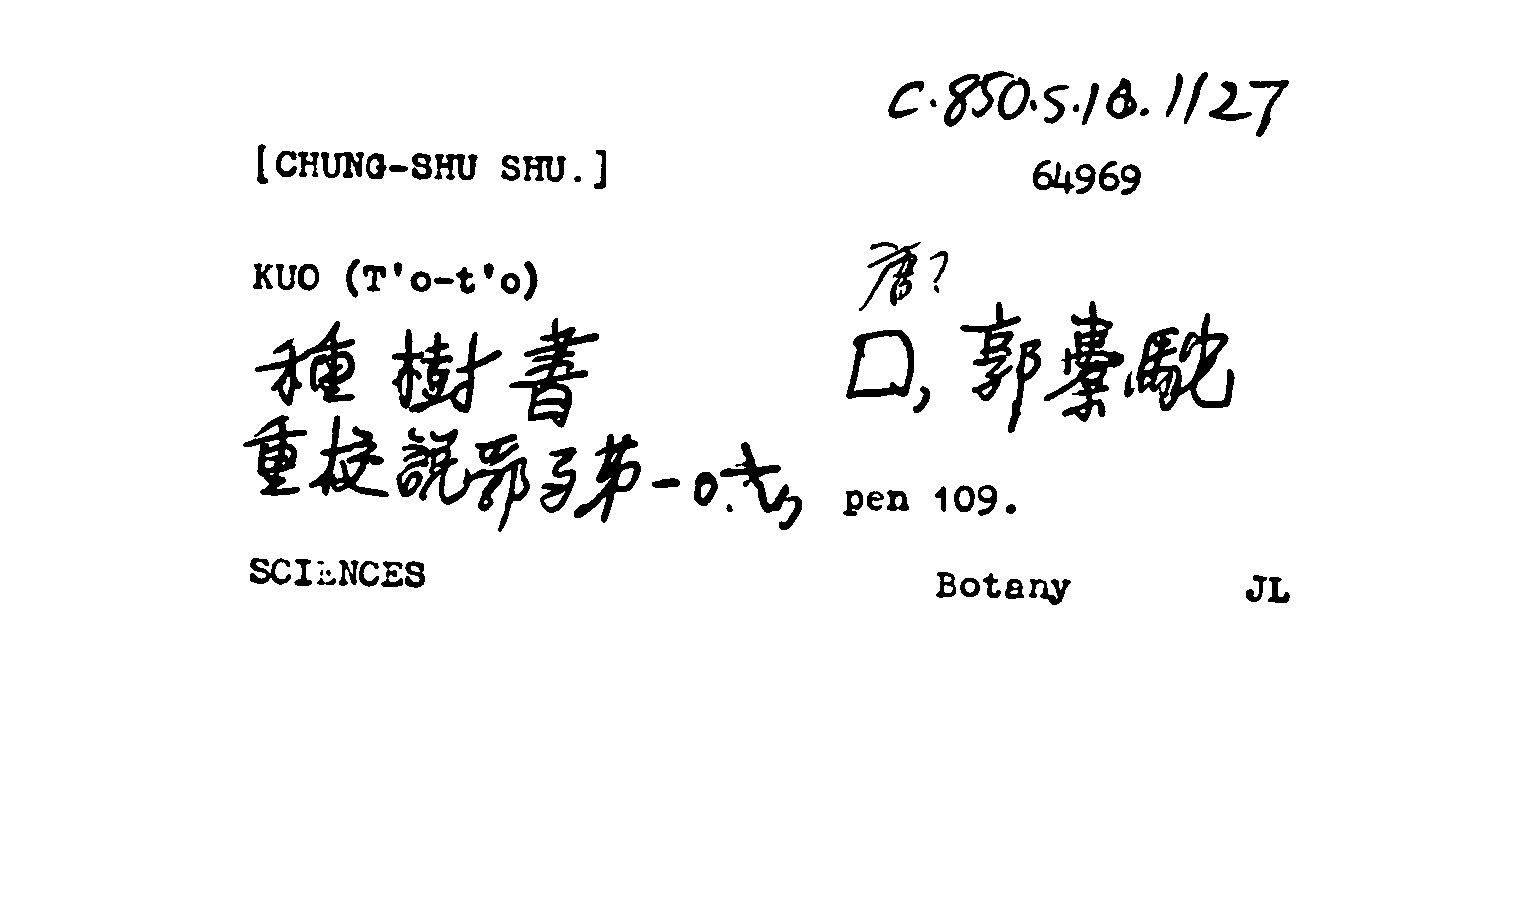 C.850.5.18.1127
[CHUNG-SHU SHU.]
64969
KUO (T'o-t'o)
唐?
種樹書 口, 郭橐駝
重校說郛弓第一〇六 pen 109.
SCIENCES Botany JL